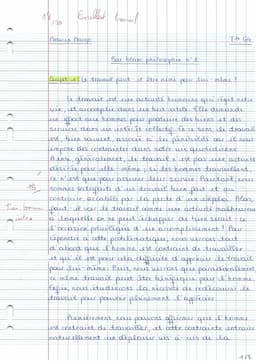 Excellent travail
T G4
Bac blanc philosophie n°2
Sujet n°1 le travail peut-il être aimé pour lui-même ?
Le travail est une activité humaine qui régit notre
vie, et accomplie dans un but utile. Elle demande
un effort aux hommes pour produire des biens et des
services dans un intérêt collectif. En ce sens, le travail
est bien souvent associé à la pénibilité car il nous
impose des contraintes dans notre vie quotidienne.
Ainsi, généralement, le travail n'est pas une activité
désirée pour elle-même ; si les hommes travaillaient,
ce n'est que pour assurer leur survie. Pourtant, nous
sommes satisfaits d'un travail bien fait et au
contraire accablés par la perte d'un emploi. Alors,
faut-il voir le travail comme une activité malheureuse
à laquelle on ne peut échapper ou bien serait-ce
l'occasion privilégiée d'un accomplissement ? Pour
répondre à cette problématique, nous verrons tout
d'abord que l'homme est contraint de travailler
et qu'il est pour cela difficile d'apprécier le travail
pour lui-même. Puis, nous verrons que paradoxalement,
ce même travail peut être bénéfique pour l'homme.
Enfin, nous étudierons la nécessité de redécouvrir le
travail pour pouvoir pleinement l'apprécier.
Premièrement nous pouvons affirmer que l'homme
est contraint de travailler, et cette contrainte entraîne
naturellement un déplaisir vis-à-vis de la
1/3